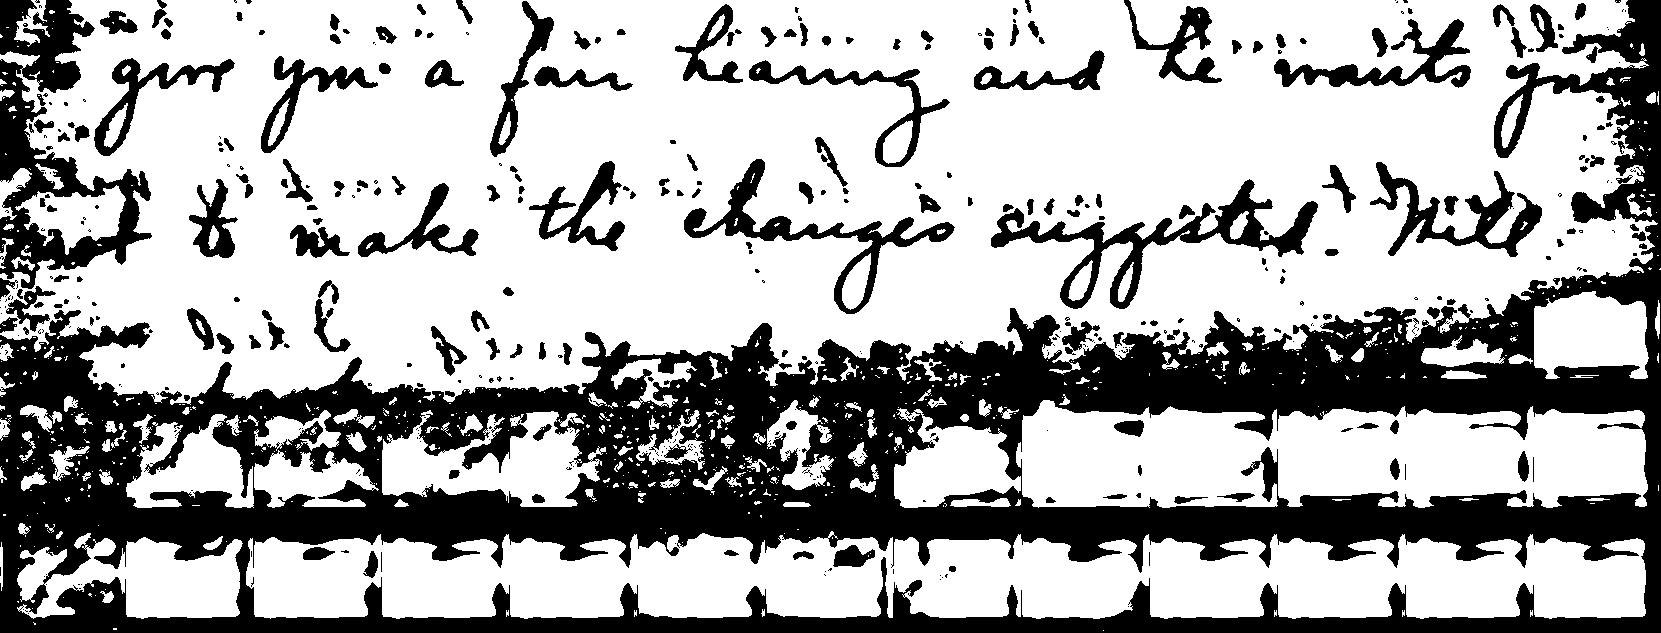 give you a fair hearing and he wants you
not to make the changes suggested. Will